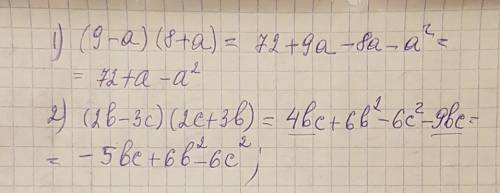 1) (9-a)(8+a) = 72+9a-8a-a²=
= 72+a-a²
2) (2b-3c)(2c+3b) = 4bc+6b²-6c²-9bc=
= -5bc+6b²-6c²;